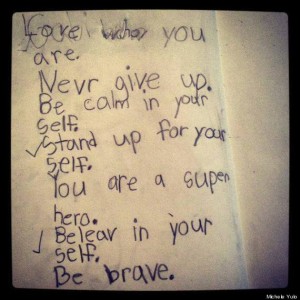 you
are.
Nevr give up.
Be calm in your
self.
Stand up for your
self.
You are a super
hero.
Belear in your
self.
Be brave.
Michele Yulo